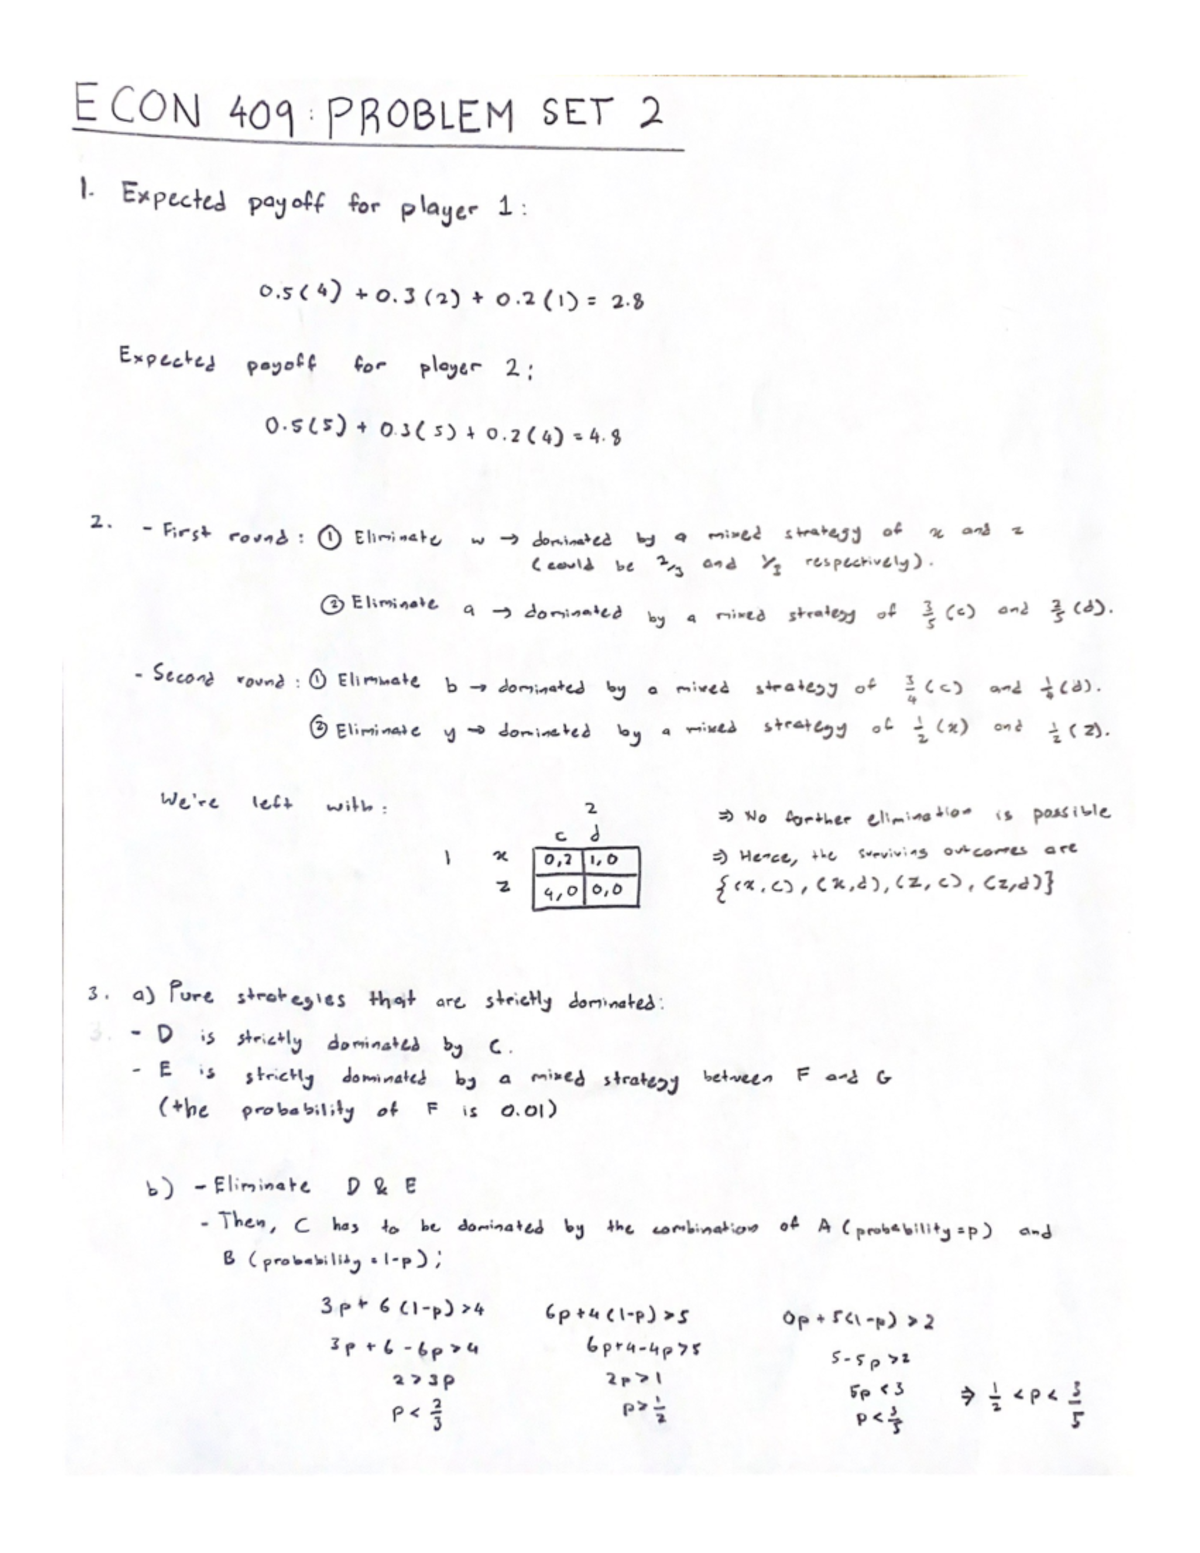 ECON 409: PROBLEM SET 2
1. Expected payoff for player 1:
0.5(4) + 0.3(2) + 0.2(1) = 2.8
Expected payoff for player 2:
0.5(5) + 0.3(5) + 0.2(4) = 4.8
2. - First round: ① Eliminate w → dominated by a mixed strategy of x and z
(could be 2/3 and 1/3 respectively).
② Eliminate a → dominated by a mixed strategy of 3/5 (c) and 2/5 (d).
- Second round: ① Eliminate b → dominated by a mixed strategy of 3/4 (c) and 1/4 (d).
② Eliminate y → dominated by a mixed strategy of 1/2 (x) and 1/2 (z).
We're left with:
2
c d
1 x 0,2 1,0
z 4,0 0,0
⇒ No further elimination is possible
⇒ Hence, the surviving outcomes are
{(x,c), (x,d), (z,c), (z,d)}
3. a) Pure strategies that are strictly dominated:
3. - D is strictly dominated by C.
- E is strictly dominated by a mixed strategy between F and G
(the probability of F is 0.01)
b) - Eliminate D & E
- Then, C has to be dominated by the combination of A (probability = p) and
B (probability = 1-p);
3p + 6(1-p) > 4 6p + 4(1-p) > 5 0p + 5(1-p) > 2
3p + 6 - 6p > 4 6p + 4 - 4p > 5 5 - 5p > 2
2 > 3p 2p > 1 5p < 3 ⇒ 1/2 < p < 3/5
p < 2/3 p > 1/2 p < 3/5